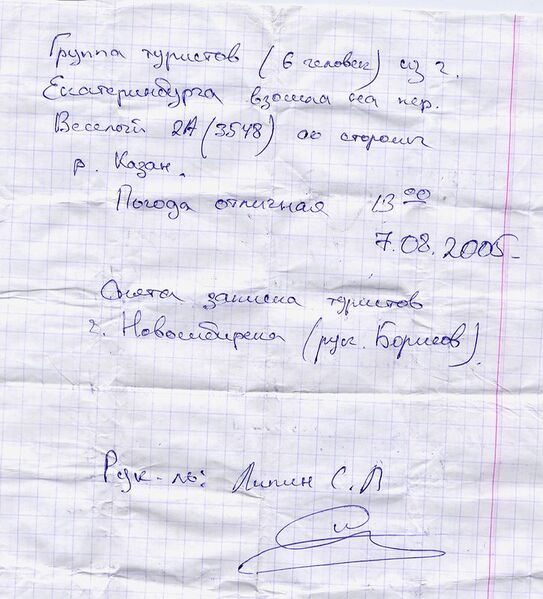 Группа туристов (6 человек) из г.
Екатеринбурга взошла на пер.
Веселый 2А (3548) со стороны
р. Казан.
Погода отличная 13 00
7.08.2005
Снята записка туристов
г. Новосибирска (рук. Борисов).
Рук-ль: Липин С. В